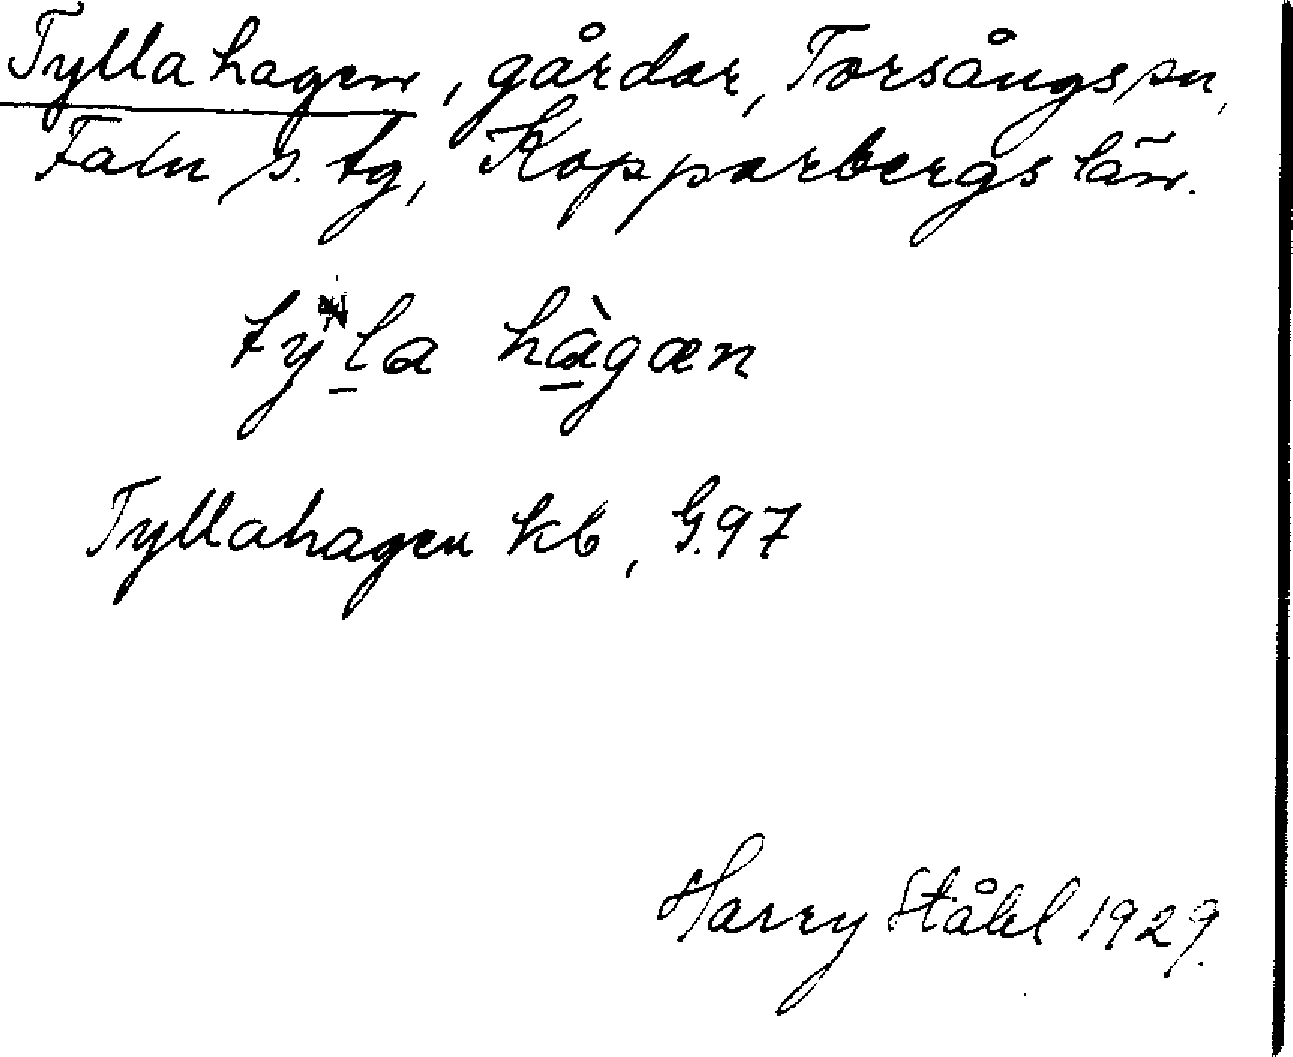 Tyllahagen, gårdar, Torsångs sn,
Falu s. tg, Kopparbergs län.
tyla hàgæn
Tyllahagen kb, G.97
Harry Ståhl 1929.